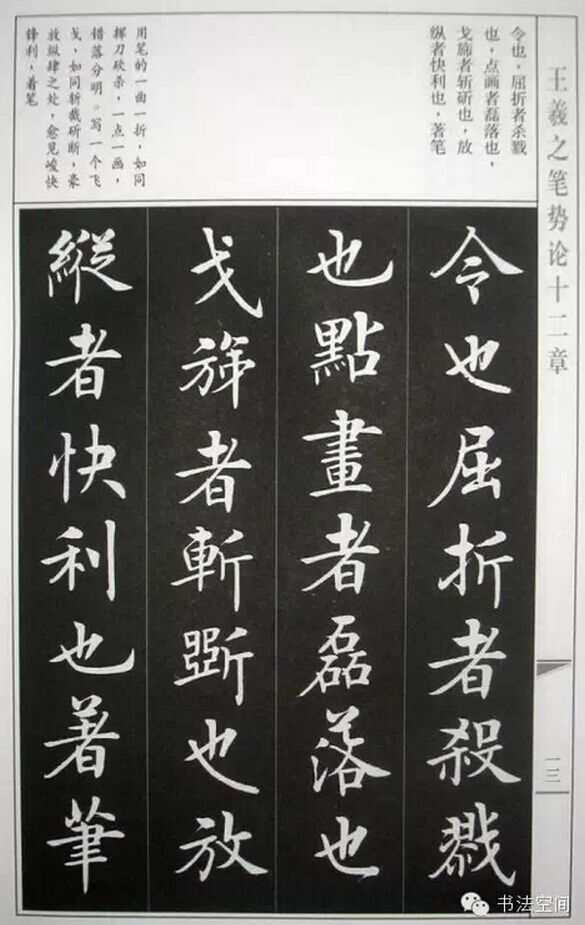 王羲之笔势论十二章
一三
令也，屈折者杀戮
也，点画者磊落也，
戈旆者斩斫也，放
纵者快利也，著笔
用笔的一曲一折，如同
挥刀砍杀，一点一画，
错落分明。写一个飞
戈，如同斩截斫断，豪
放纵肆之处，愈见峻快
锋利，着笔
令也屈折者殺戮
也點畫者磊落也
戈旆者斬斲也放
縱者快利也著筆
书法空间